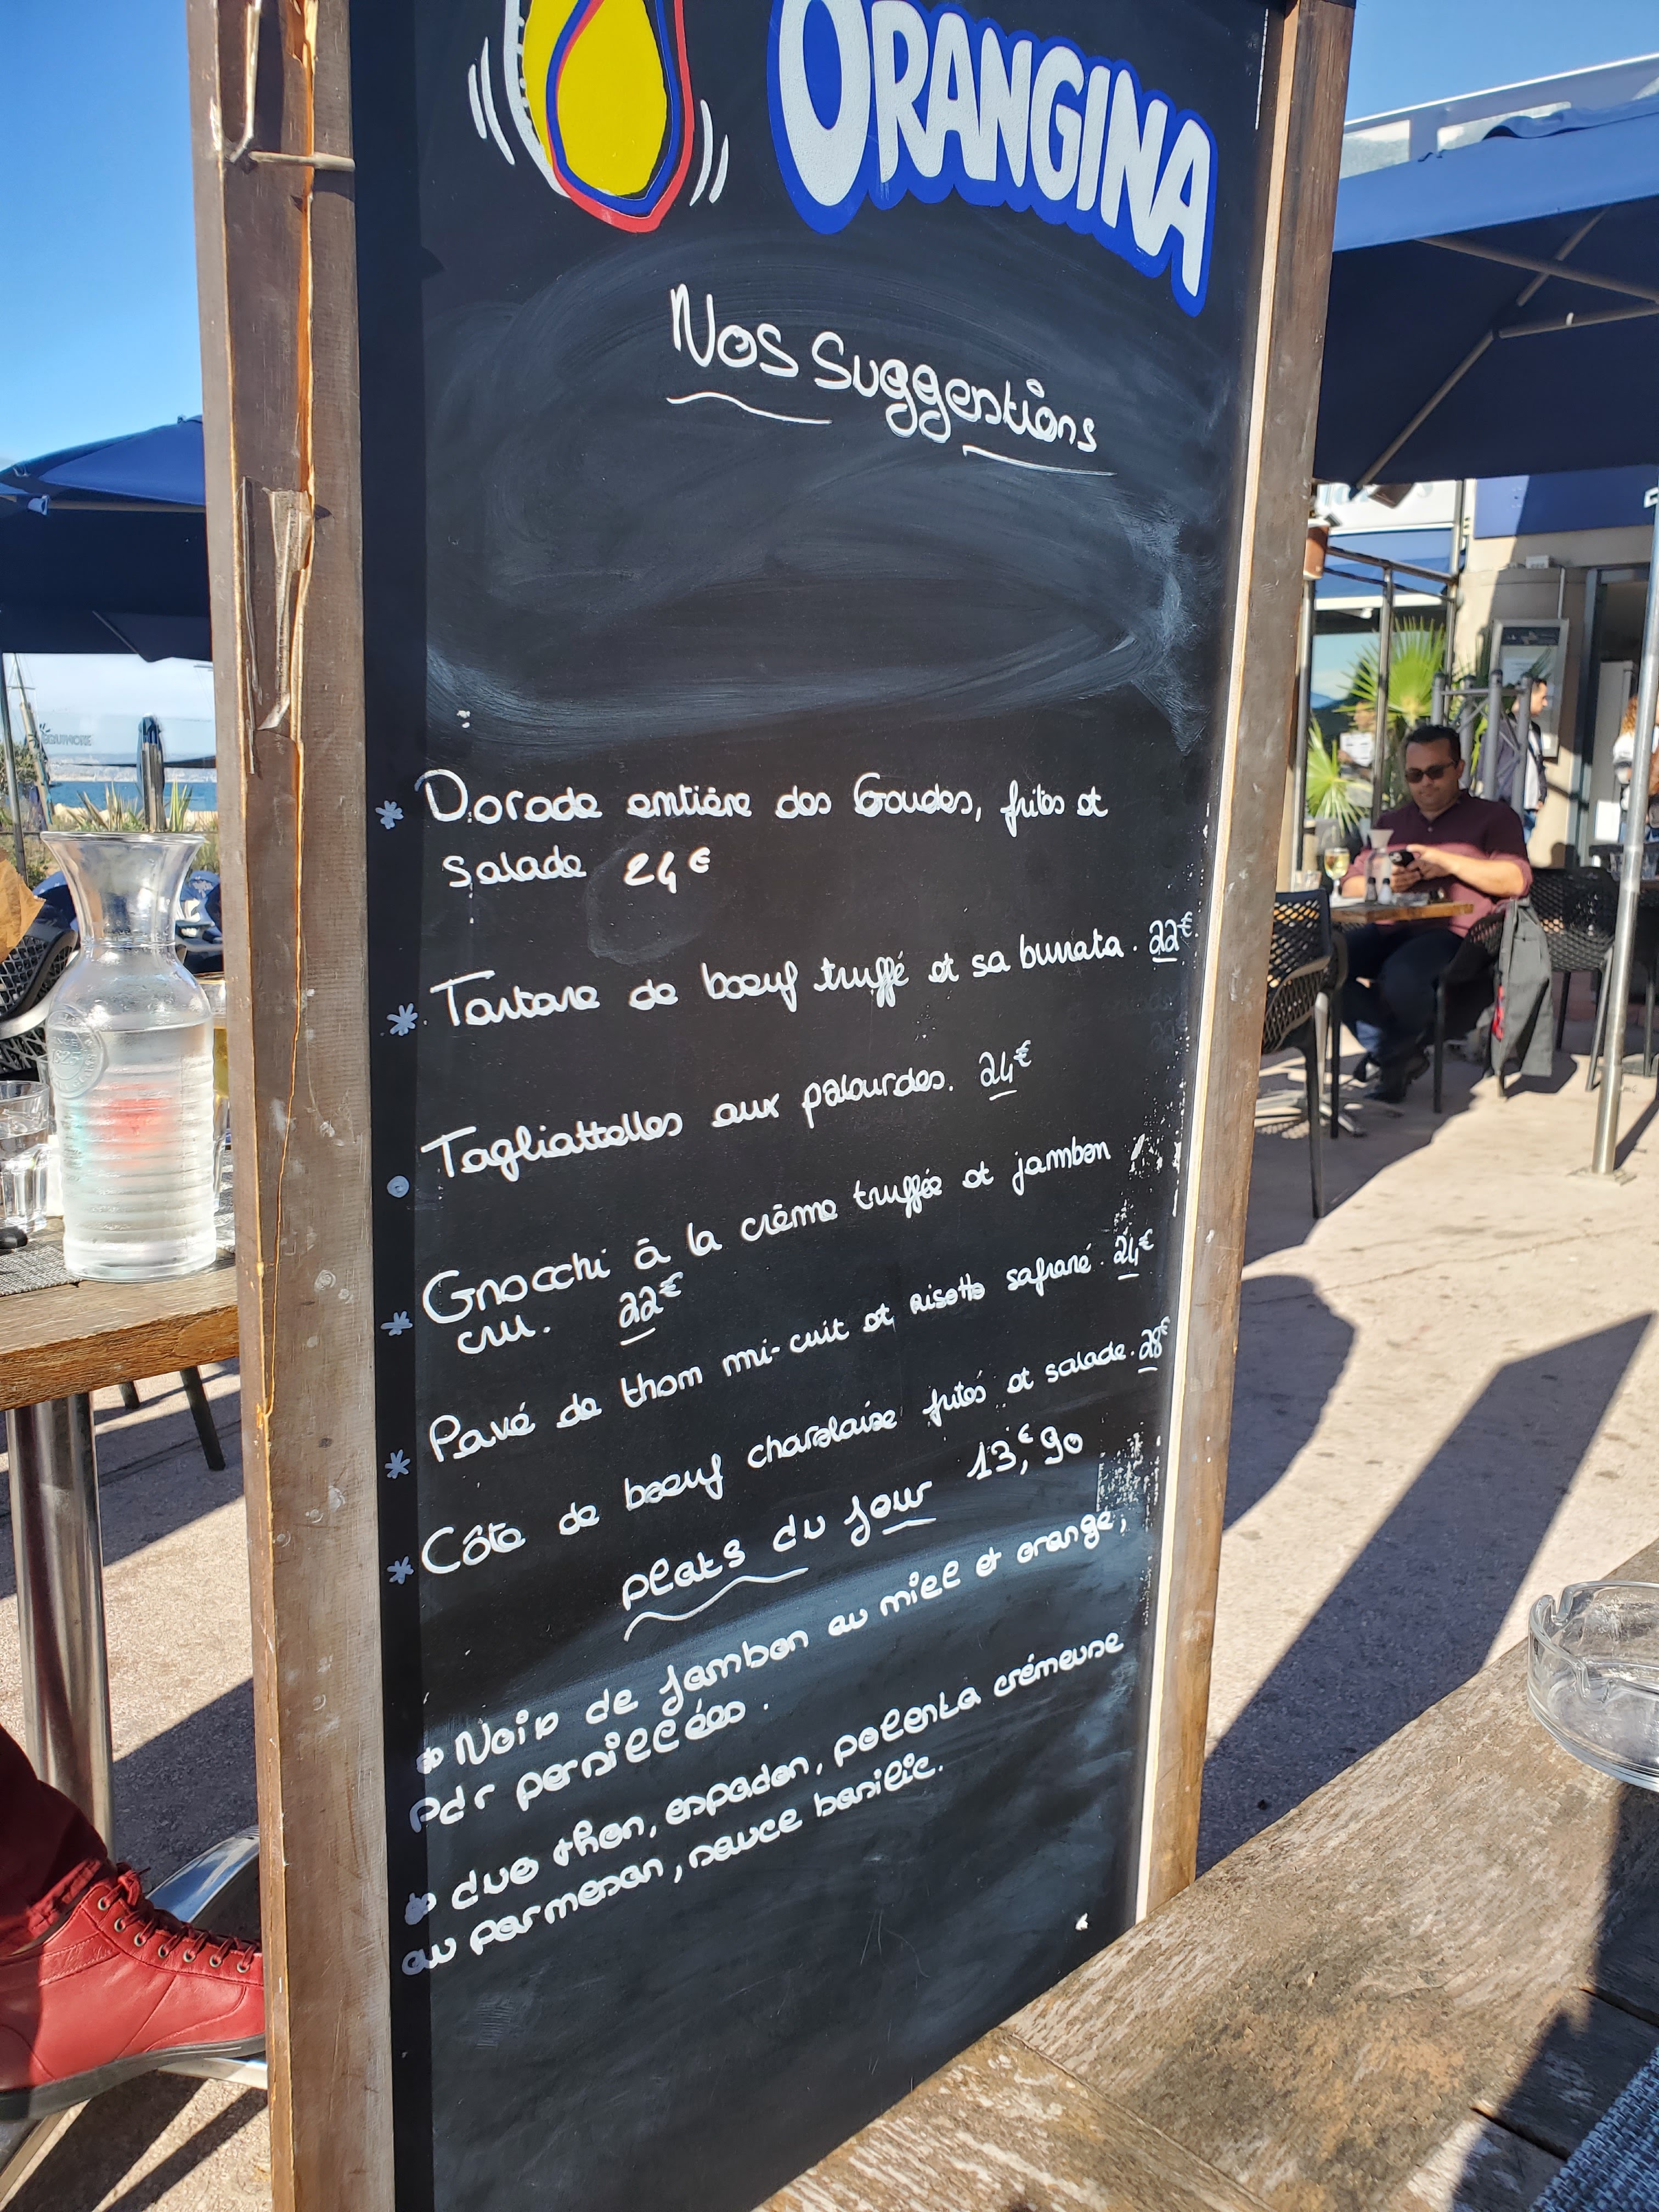 ORANGINA
Nos Suggestions
* Dorade entière des Goudes, frites et
salade 24€
* Tartare de bœuf truffé et sa burrata. 22€.
• Tagliattelles aux palourdes. 24€
* Gnocchi à la crème truffée et jambon
cru. 22€
* Pavé de thon mi-cuit et risotto safrané. 24€
* Côte de bœuf charolaise frites et salade. 28€
plats du jour 13,€90
Noix de jambon au miel et orange,
pdr persillées.
duo thon, espadon, polenta crémeuse
au parmesan, sauce basilic.